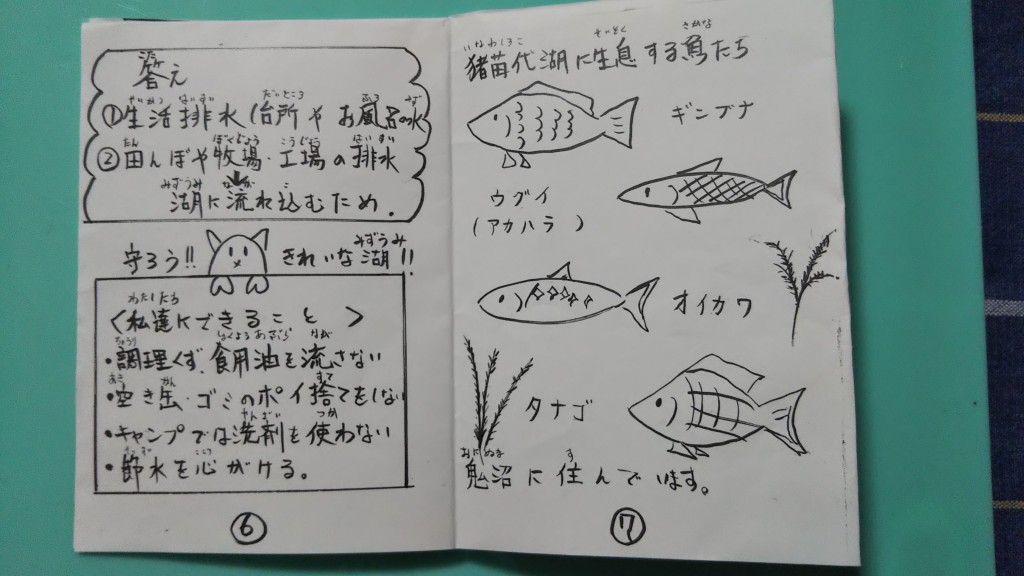 答え
①生活排水(台所やお風呂の水
②田んぼや牧場・工場の排水
湖に流れ込むため.
守ろう!! きれいな湖!!
<私達にできること>
・調理くず、食用油を流さない
・空き缶・ゴミのポイ捨てをしない
・キャンプでは洗剤を使わない
・節水を心がける。
⑥
猪苗代湖に生息する魚たち
ギンブナ
ウグイ
(アカハラ)
オイカワ
タナゴ
鬼沼に住んでいます。
⑦